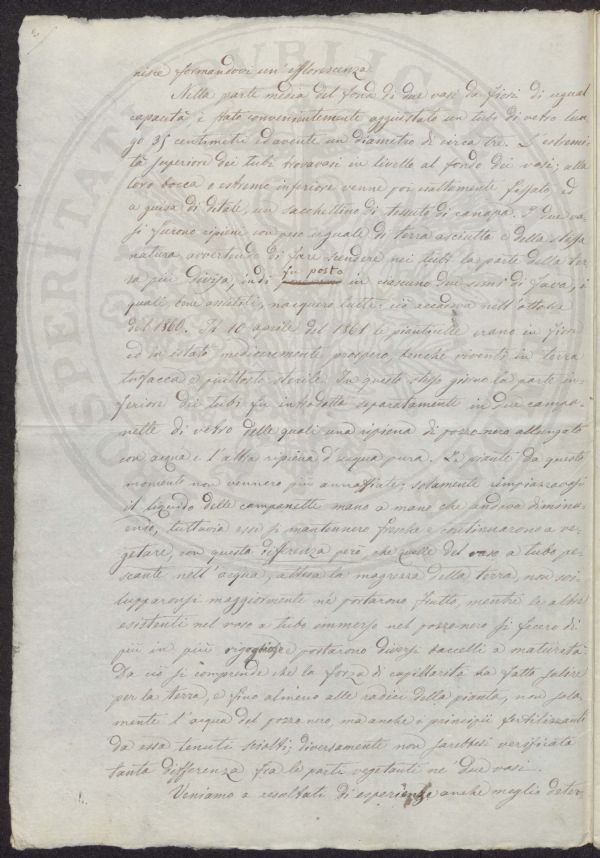 nisce formandovi un'efflorescenza
Nella parte media del fondo di due vasi da fiori di egual
capacità è stato convenientemente aggiustato un tubo di vetro lun-
go 35 centimetri ed avente un diametro di circa tre. L'estremi-
tà superiore dei tubi trovavasi in livello al fondo dei vasi; alla
loro bocca o estremo inferiore venne poi esattamente fissato, ed
a guisa di ditale, un sacchettino di tessuto di canapa. I due va-
si furono ripieni con peso eguale di terra asciutta e della stessa
natura avvertendo di fare scendere nei tubi la parte della ter-
ra più divisa, indi fu posto in ciascuno due semi di fava, i
quali bene assistiti, nacquero tutti; ciò accadeva nell'ottobre
del 1860. Il 10 aprile del 1861 le pianticelle erano in fiore
ed in istato mediocremente prospero, benchè viventi in terra
tufacea e piuttosto sterile. In questo stesso giorno la parte in-
feriore dei tubi fu introdotta separatamente in due campa-
nette di vetro delle quali una ripiena di pozzo nero allungato
con acqua e l'altra ripiena d'acqua pura. Le piante da questo
momento non vennero più annaffiate; solamente rimpiazzavasi
il liquido delle campanette mano a mano che andava diminu-
endo, tuttavia esse si mantennero fresche e continuarono a ve-
getare, con questa differenza però, che quelle del vaso a tubo pe-
scante nell'acqua, attesa la magrezza della terra, non svi-
lupparonsi maggiormente nè portarono frutto, mentre le altre
esistenti nel vaso a tubo immerso nel pozzo nero si fecero di
più in più rigogliose e portarono diversi baccelli a maturità.
Da ciò si comprende che la forza di capillarità ha fatto salire
per la terra, e fino almeno alle radici della pianta, non sola-
mente l'acqua del pozzo nero, ma anche i principii fertilizzanti
da essa tenuti sciolti; diversamente non sarebbesi verificata
tanta differenza fra le parti vegetante nei due vasi.
Veniamo a resultati di esperienze anche meglio deter-
SPERITATI PUBLICAE